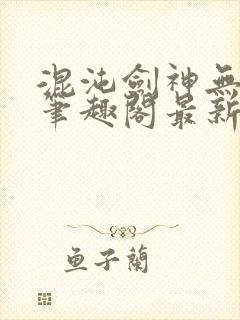 混沌劍神無
筆趣閣最新
魚子蘭